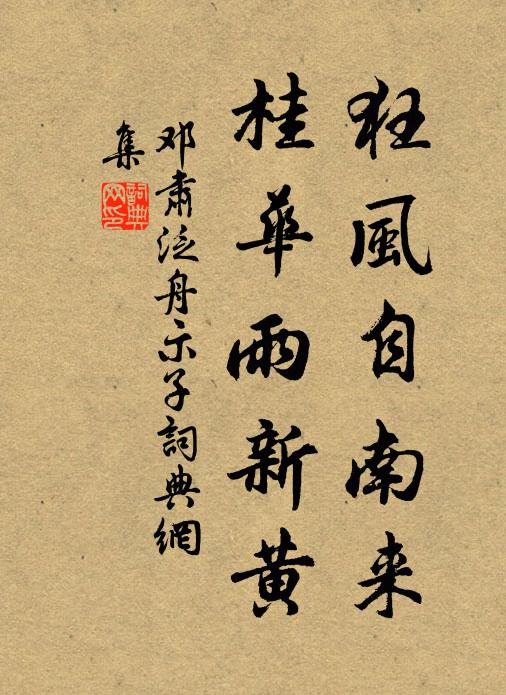 狂風自南来
桂華雨新黄
邓肅泛舟示子詞典網
集
詞典
网印